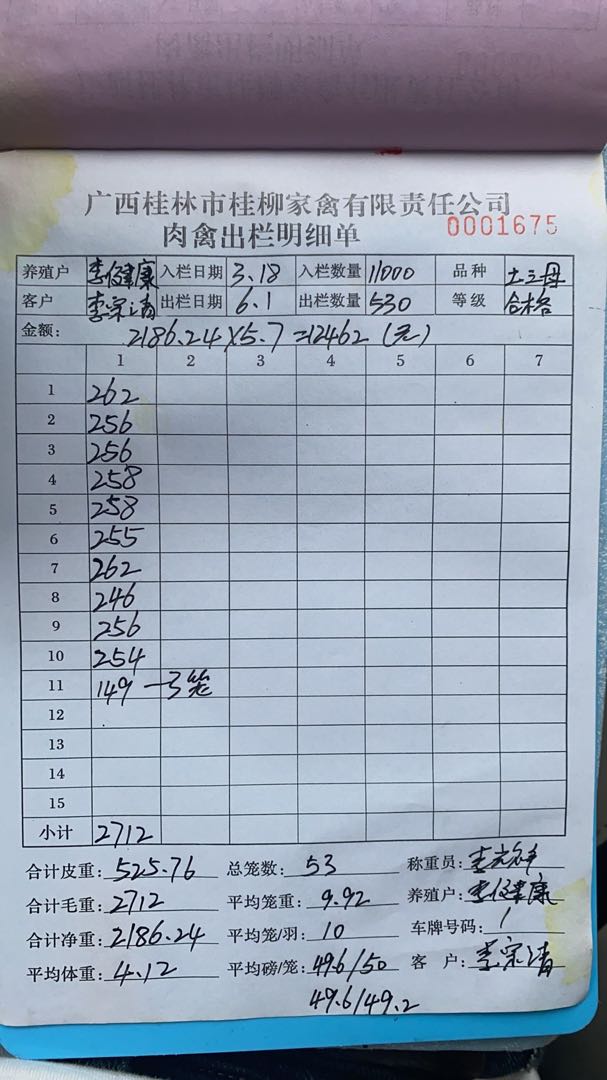 广西桂林市桂柳家禽有限责任公司
肉禽出栏明细单 0001675
养殖户 李健康 入栏日期 3.18 入栏数量 11000 品种 土三母
客户 李宗清 出栏日期 6.1 出栏数量 530 等级 合格
金额: 2186.24×5.7=12462(元)
1 2 3 4 5 6 7
1 262
2 256
3 256
4 258
5 258
6 255
7 262
8 246
9 256
10 254
11 149 —3笼
12
13
14
15
小计 2712
合计皮重: 525.76 总笼数: 53 称重员: 李
合计毛重: 2712 平均笼重: 9.92 养殖户: 李健康
合计净重: 2186.24 平均笼/羽: 10 车牌号码: 1
平均体重: 4.12 平均磅/笼: 49.6/50 客户: 李宗清
49.6/49.2